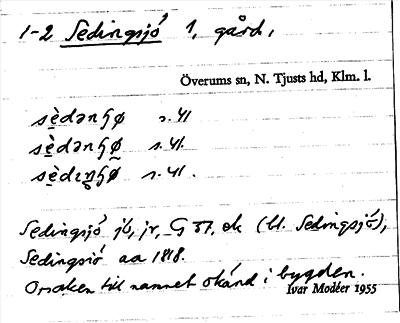 1-2 Sedingsjö 1, gård,
Överums sn, N. Tjusts hd, Klm. l.
sèdənʃø s. 41
sèdənʃø s. 41.
sèdɪnʃø s. 41.
Sedingsjö jb, jr, G ek (bl. Sedingsjö),
Sedingsiö aa 1818.
Orsaken till namnet okänd i bygden.
Ivar Modéer 1955